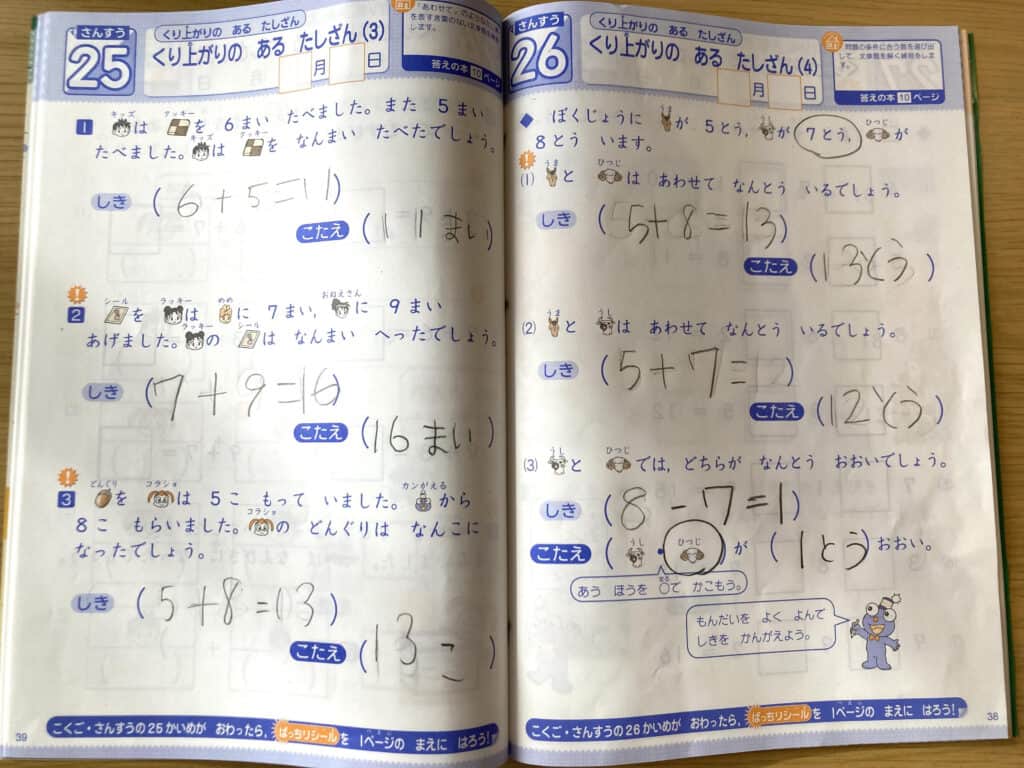 さんすう
25
くり上がりの ある たしざん
くり上がりの ある たしざん(3)
月 日
「あわせて」のような
を表す言葉のない文章題
します。
答えの本 10 ページ
キッズ クッキー
1 は を 6まい たべました。また 5まい
クッキー
たべました。 は を なんまい たべたでしょう。
しき (6+5=11)
こたえ (11まい)
シール ラッキー めめ おねえさん
2 を は に 7まい, に 9まい
ラッキー シール
あげました。 の は なんまい へったでしょう。
しき (7+9=16)
こたえ (16まい)
どんぐり コラショ カンがえる
3 を は 5こ もって いました。 から
コラショ
8こ もらいました。 の どんぐりは なんこに
なったでしょう。
しき (5+8=13)
こたえ (13こ)
こくご・さんすうの25かいめが おわったら, ばっちりシールを 1ページの まえに はろう!
39
さんすう
26
くり上がりの ある たしざん
くり上がりの ある たしざん(4)
月 日
問題の条件に合う数を選び出
して, 文章題を解く練習をしま
す。
答えの本 10 ページ
うま うし ひつじ
◆ ぼくじょうに が 5とう, が 7とう, が
8とう います。
うま ひつじ
(1) と は あわせて なんとう いるでしょう。
しき (5+8=13)
こたえ (13とう)
うま うし
(2) と は あわせて なんとう いるでしょう。
しき (5+7=12)
こたえ (12とう)
うし ひつじ
(3) と では, どちらが なんとう おおいでしょう。
しき (8-7=1)
うし ひつじ
こたえ ( ・ ) が (1とう) おおい。
あう ほうを ○で かこもう。
もんだいを よく よんで
しきを かんがえよう。
こくご・さんすうの26かいめが おわったら, ばっちりシールを 1ページの まえに はろう!
38